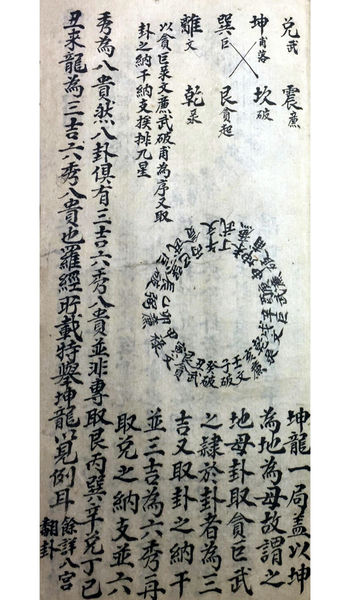 兌武 震廉
坤甫落 坎破
巽巨 艮貪起
離文 乾彔
以貪巨彔文廉武破甫為序又取
卦之納干納支挨排九星
壬文
子破
癸破
丑武
坤龍一局蓋以坤
為地為母故謂之
地母卦取貪巨武
之隸於卦者為三
吉又取卦之納干
並三吉為六秀再
取兌之納支並六
秀為八貴然八卦俱有三吉六秀八貴並非專取艮丙巽辛兌丁巳
丑來龍為三吉六秀八貴也羅經所載特舉坤龍以見例耳
餘詳八宮
翻卦